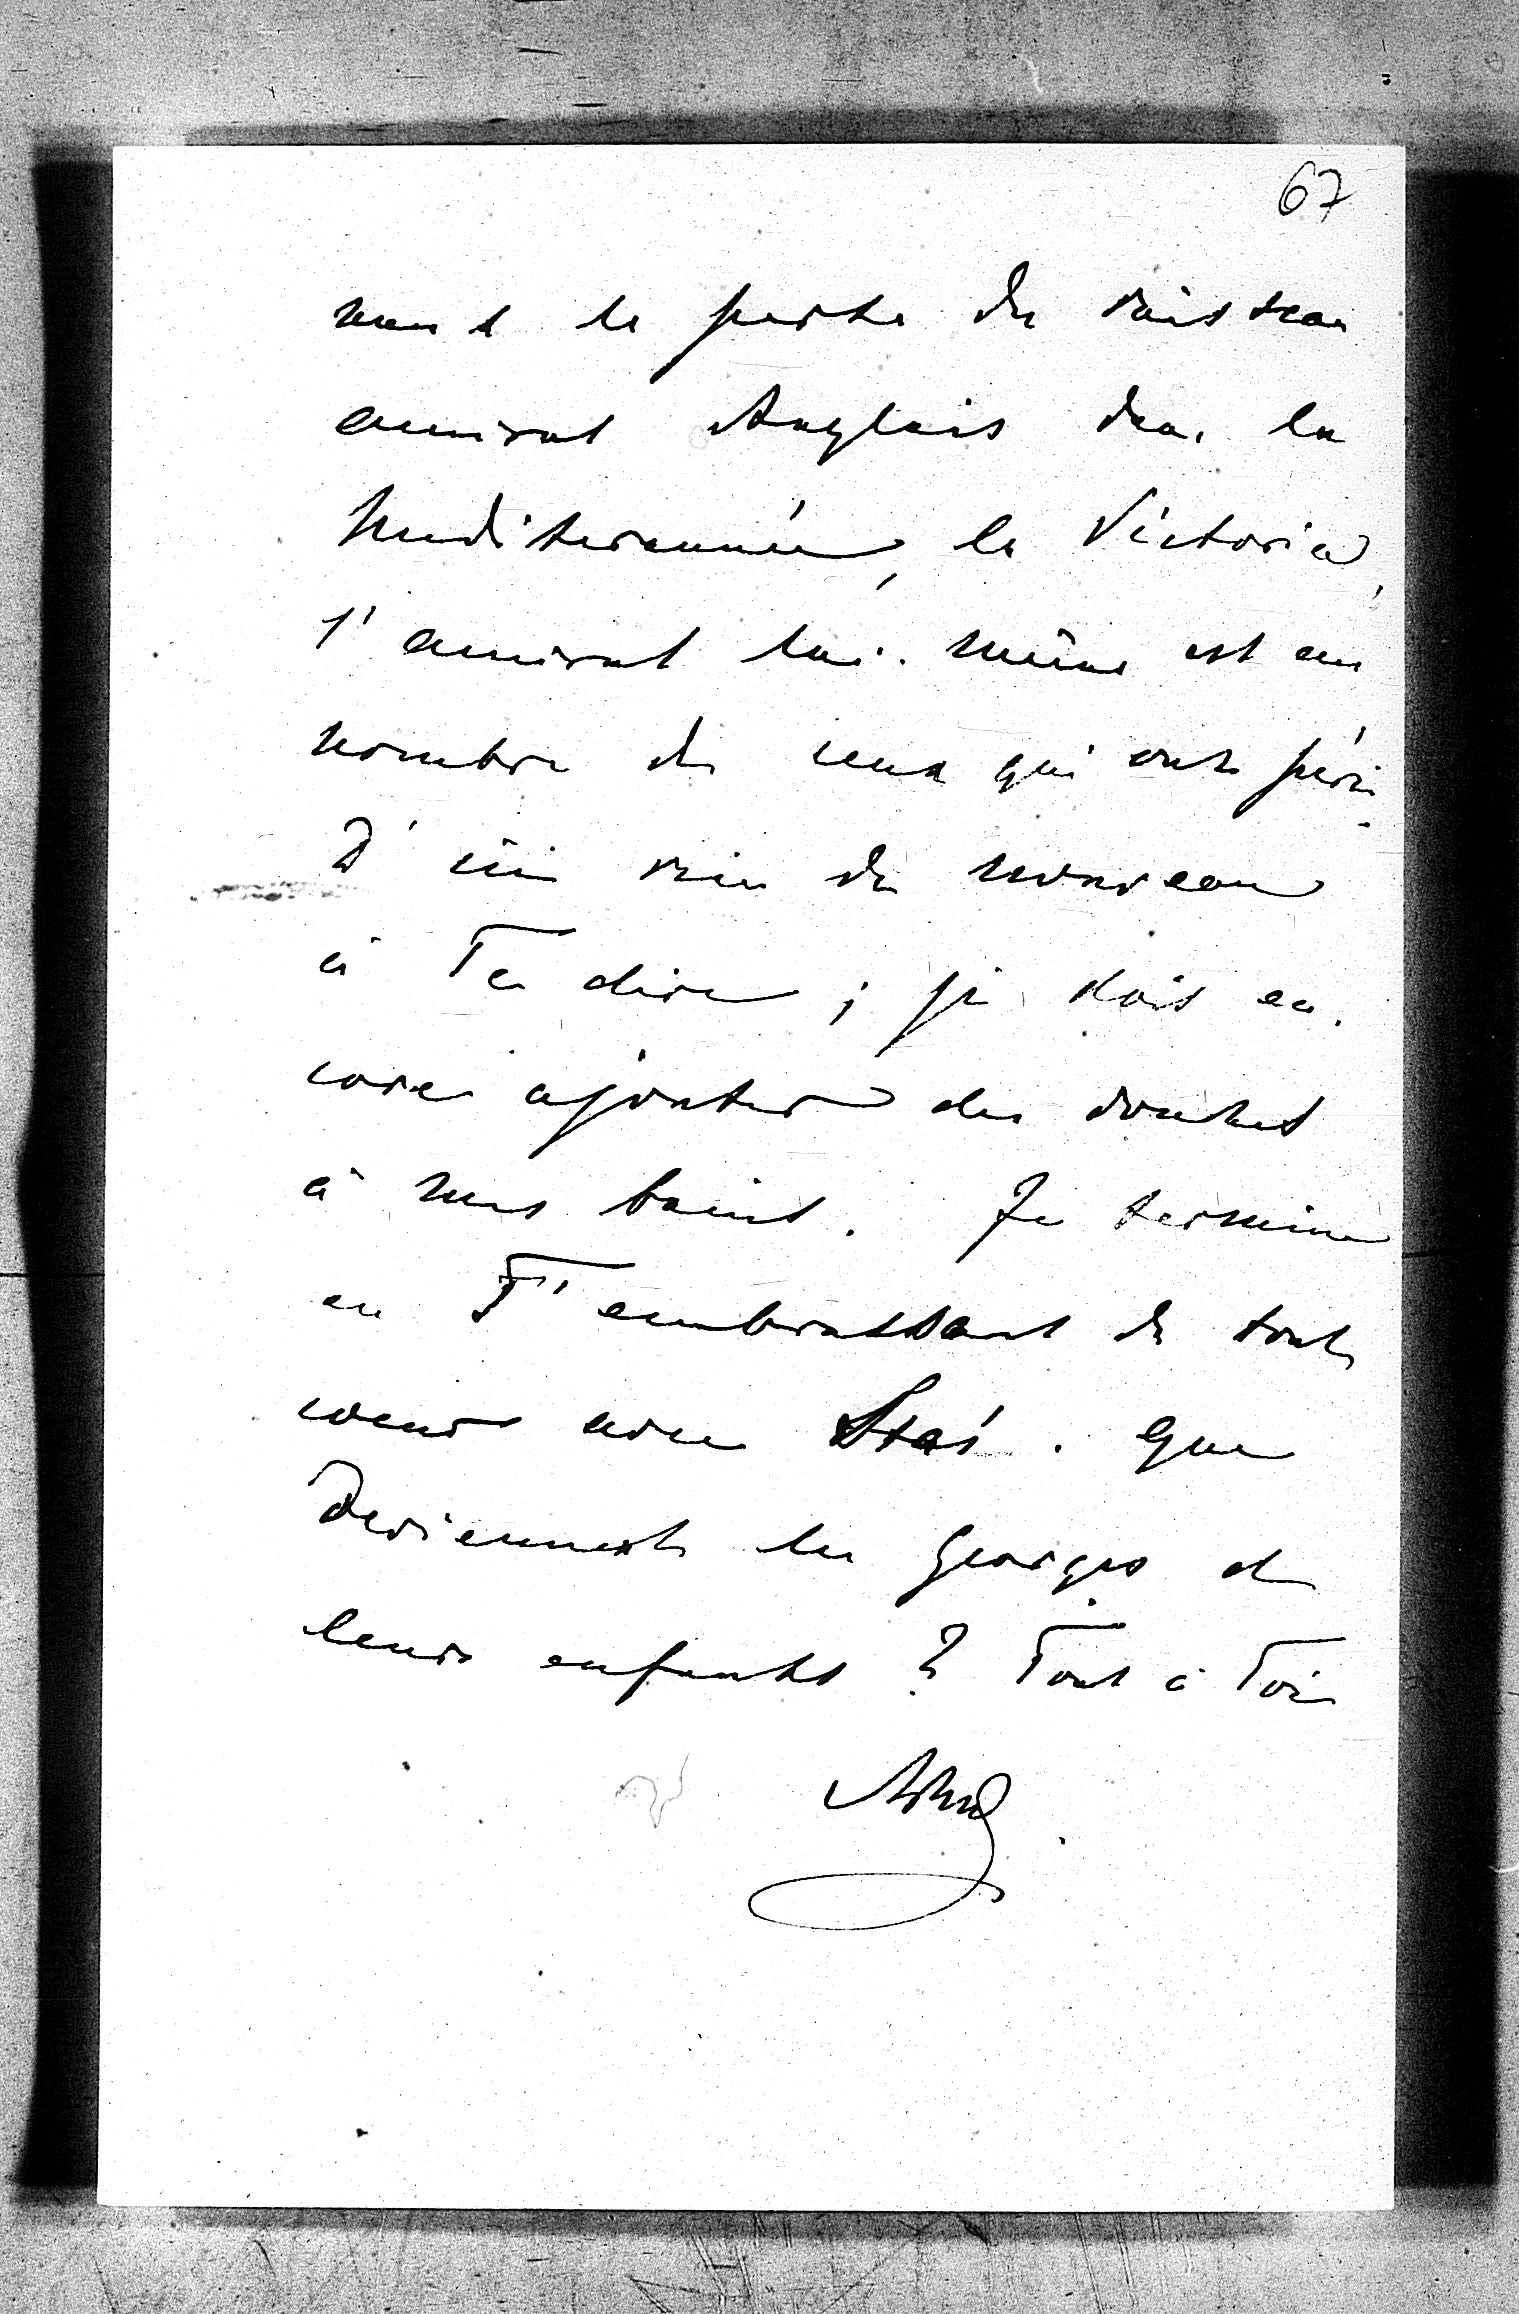 67
ment la perte du vaisseau
amiral Anglais dans la
Mediterannée, le Victoria,
l'amiral lui-même est au
nombre de ceux qui ont péri.
D'ici rien de nouveau
à Te dire ; je dois en-
core ajouter des douches
à mes bains. Je termine
en T'embrassant de tout
coeur avec Stas. Que
deviennent les Georges et
leurs enfants ? Tout à Toi